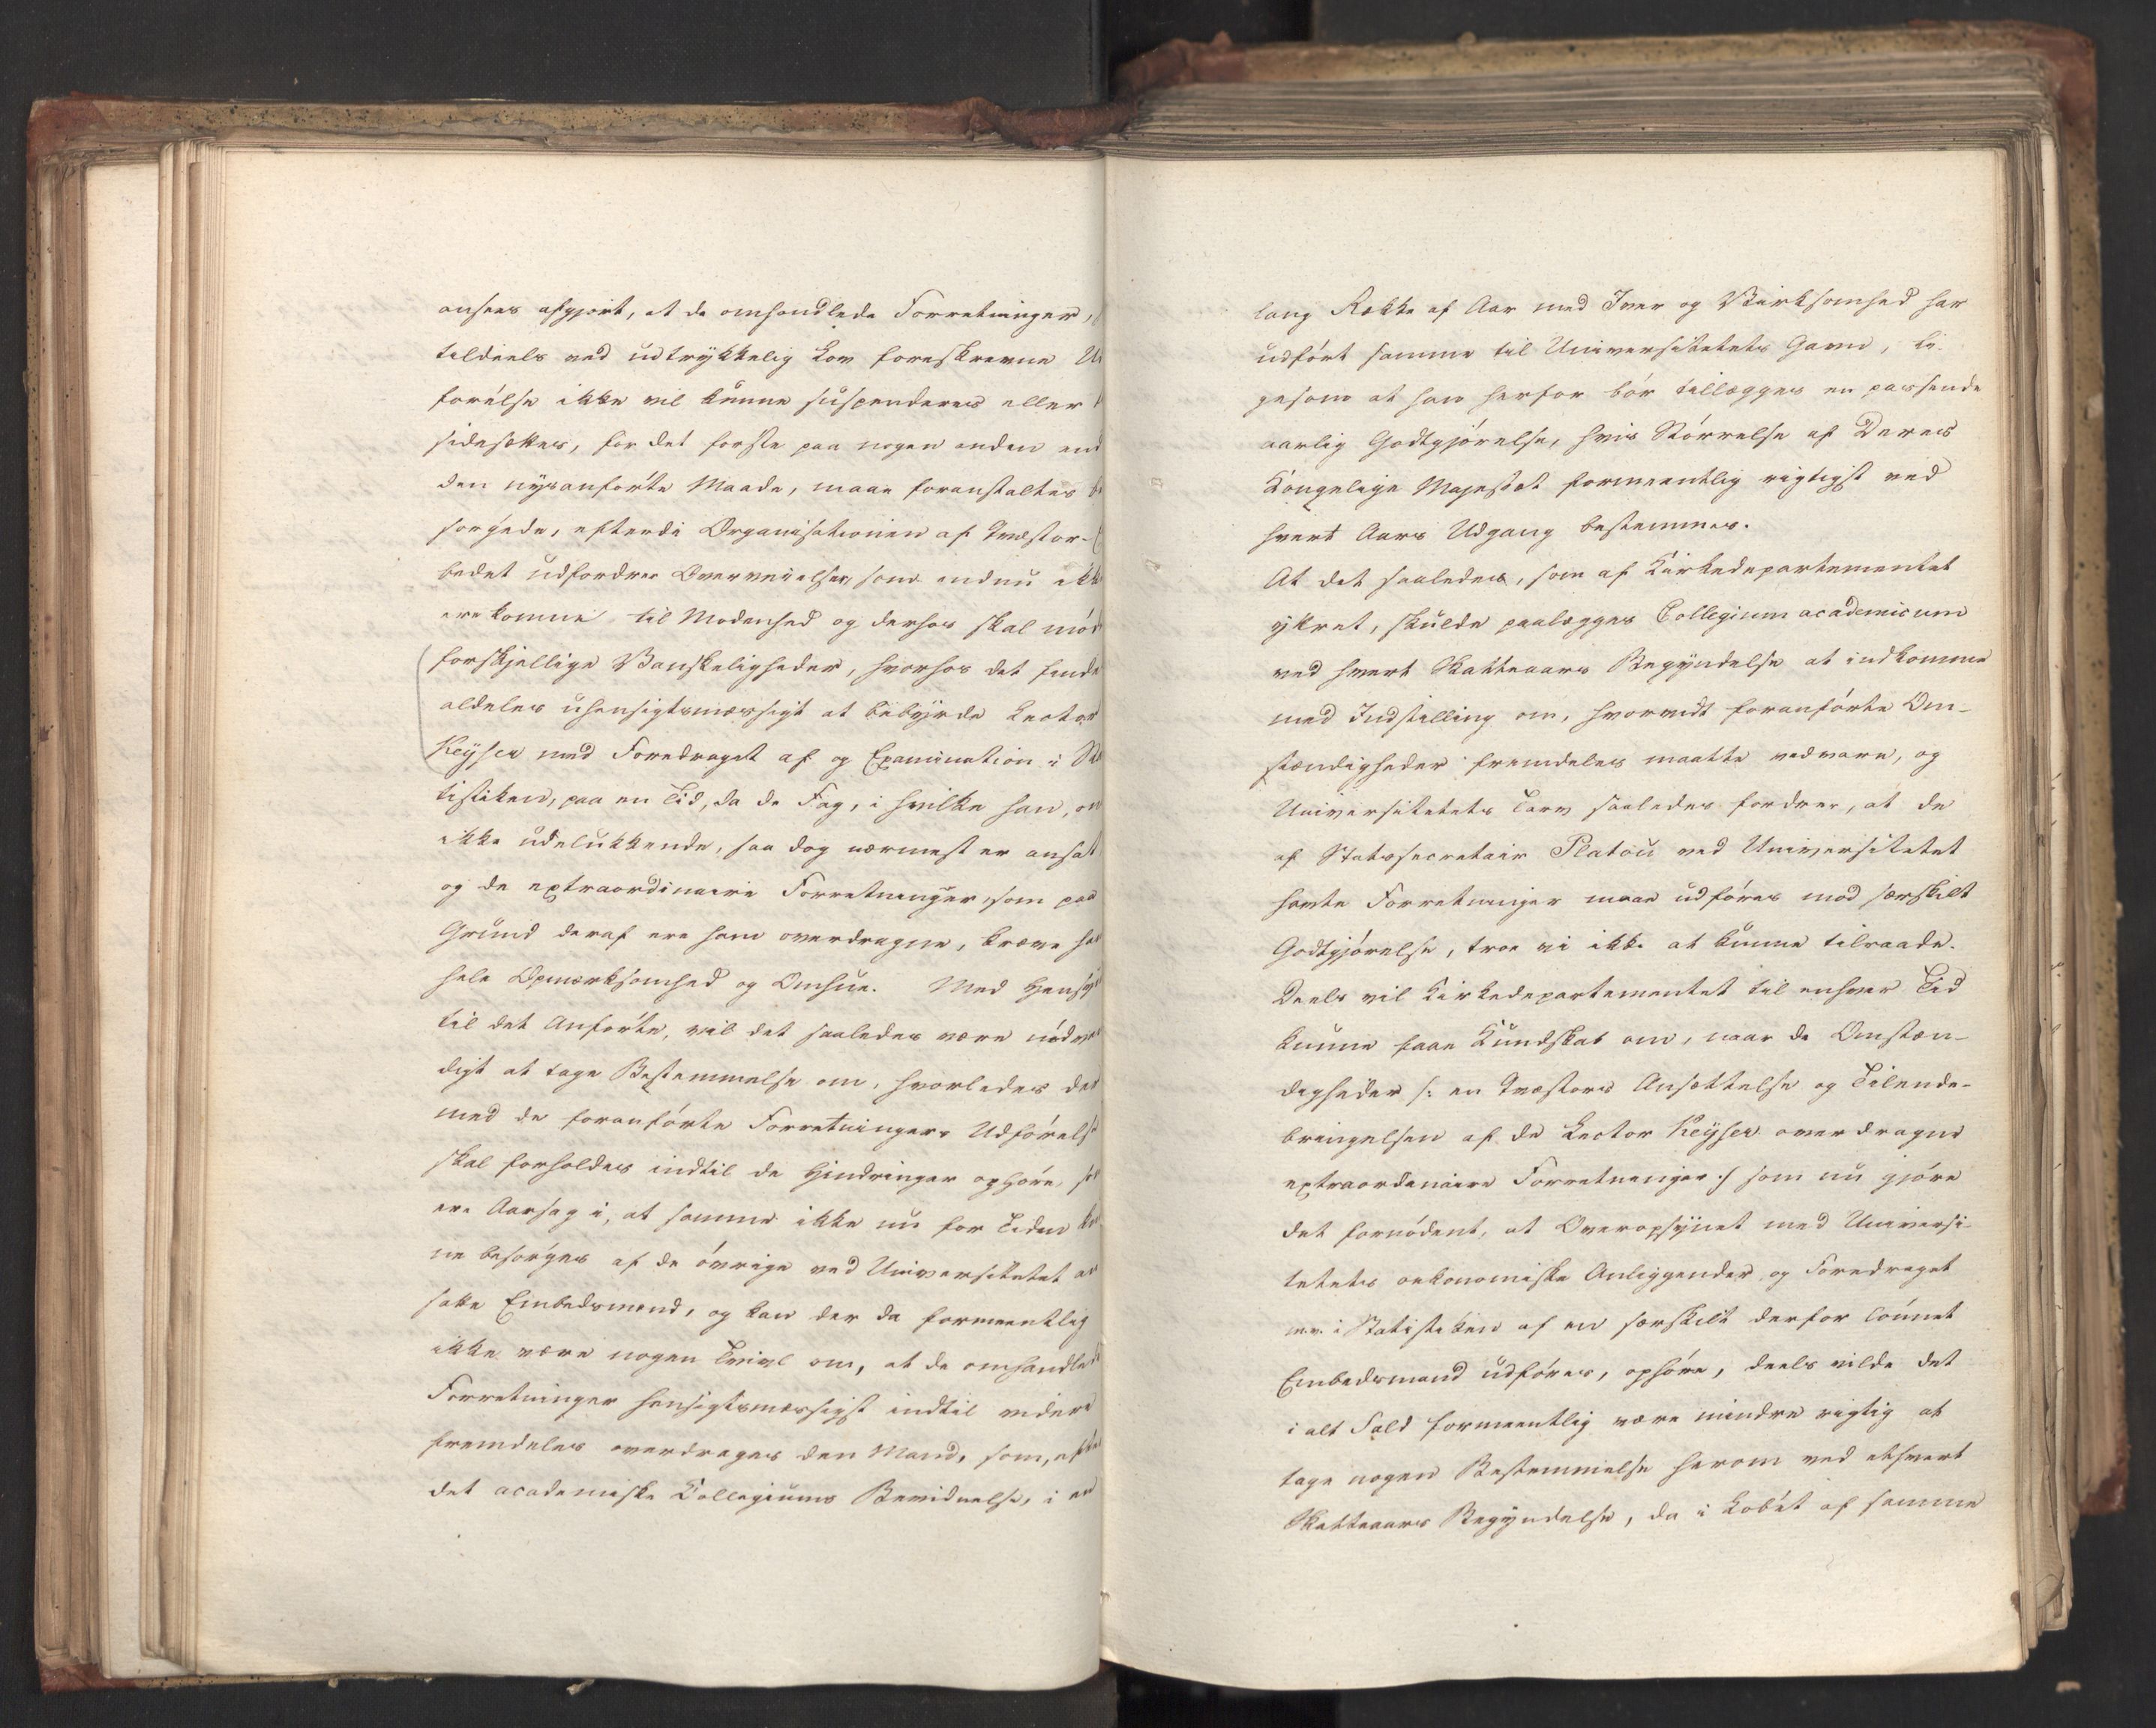 ansees afgjort, at de omhandlede Forretninger,
tildeels ved udtrykkelig Lov foreskrevne
førelse ikke vil kunne suspenderes eller
sidesættes, for det første paa nogen anden end
den nysanførte Maade, maae foranstaltes
sørgede, efterdi Organisationen af Qvæstor-
bedet udfordrer Overveielser, som endnu ikke
ere komne til Modenhed og derhos skal mød
forskjellige Vanskeligheder, hvorhos det finde
aldeles uhensigtsmæssigt at bebyrde Lector
Keyser med Foredraget af og Examination i Sta
tistiken, paa en Tid, da de Fag, i hvilke han, om
ikke udelukkende, saa dog nærmest er ansat
og de extraordinaire Forretninger, som paa
Grund deraf ere ham overdragne, kræve ha
hele Opmærksomhed og Omhue. Med Hensyn
til det Anførte, vil det saaledes være nødven
digt at tage Bestemmelse om, hvorledes der
med de foranførte Forretningers Udførelse
skal forholdes indtil de Hindringer ophøre, som
ere Aarsag i, at samme ikke nu for Tiden kun
ne besørges af de øvrige ved Universitetet an
satte Embedsmænd, og kan der da formeentlig
ikke være nogen Tvivl om, at de omhandlede
Forretninger hensigtsmæssigst indtil videre
fremdeles overdrages den Mand, som, efter
det academiske Collegiums Bevidnelse, i en
lang Række af Aar med Iver og Virksomhed har
udført samme til Universitetets Gavn, li-
gesom at han herfor bør tillægges en passende
aarlig Godtgjørelse, hvis Størrelse af Deres
Kongelige Majestæt formeentlig rigtigst ved
hvert Aars Udgang bestemmes.
At det saaledes, som af Kirkedepartementet
yttret, skulde paalægges Collegium academicum
ved hvert Skatteaars Begyndelse at indkomme
med Indstilling om, hvorvidt foranførte Om-
stændigheder fremdeles maatte vedvare, og
Universitetets Tarv saaledes fordrer, at de
af Statssecretair Platou ved Universitetet
havte Forretninger maae udføres mod særskilt
Godtgjørelse, troe vi ikke at kunne tilraade.
Deels vil Kirkedepartementet til enhver Tid
kunne faae Kundskab om, naar de Omstæn-
digheder /: en Qvæstors Ansættelse og Tilende-
bringelsen af de Lector Keyser overdragne
extraordinaire Forretninger :/ som nu gjøre
det fornødent, at Overopsynet med Universi-
tetets oekonomiske Anliggender og Foredraget
m.v. i Statistiken af en særskilt derfor lønnet
Embedsmand udføres, ophøre, deels vilde det
i alt Fald formeentlig være mindre rigtig at
tage nogen Bestemmelse herom ved ethvert
Skatteaars Begyndelse, da i Løbet af samme